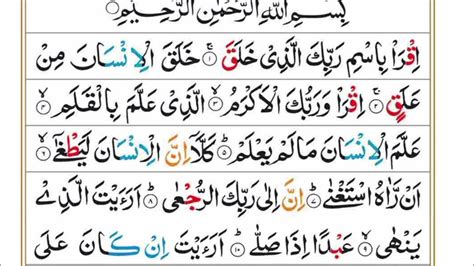 بِسْمِ اللهِ الرَّحْمٰنِ الرَّحِيْمِ
اِقْرَاْ بِاسْمِ رَبِّكَ الَّذِىْ خَلَقَ ۝۱ خَلَقَ الْاِنْسَانَ مِنْ
عَلَقٍ ۝۲ اِقْرَاْ وَرَبُّكَ الْاَكْرَمُ ۝۳ الَّذِىْ عَلَّمَ بِالْقَلَمِ ۝۴
عَلَّمَ الْاِنْسَانَ مَا لَمْ يَعْلَمْ ۝۵ كَلَّاۤ اِنَّ الْاِنْسَانَ لَيَطْغٰٓى ۝۶
اَنْ رَّاٰهُ اسْتَغْنٰى ۝۷ اِنَّ اِلٰى رَبِّكَ الرُّجْعٰى ۝۸ اَرَءَيْتَ الَّذِىْ
يَنْهٰى ۝۹ عَبْدًا اِذَا صَلّٰى ۝۱۰ اَرَءَيْتَ اِنْ كَانَ عَلَى